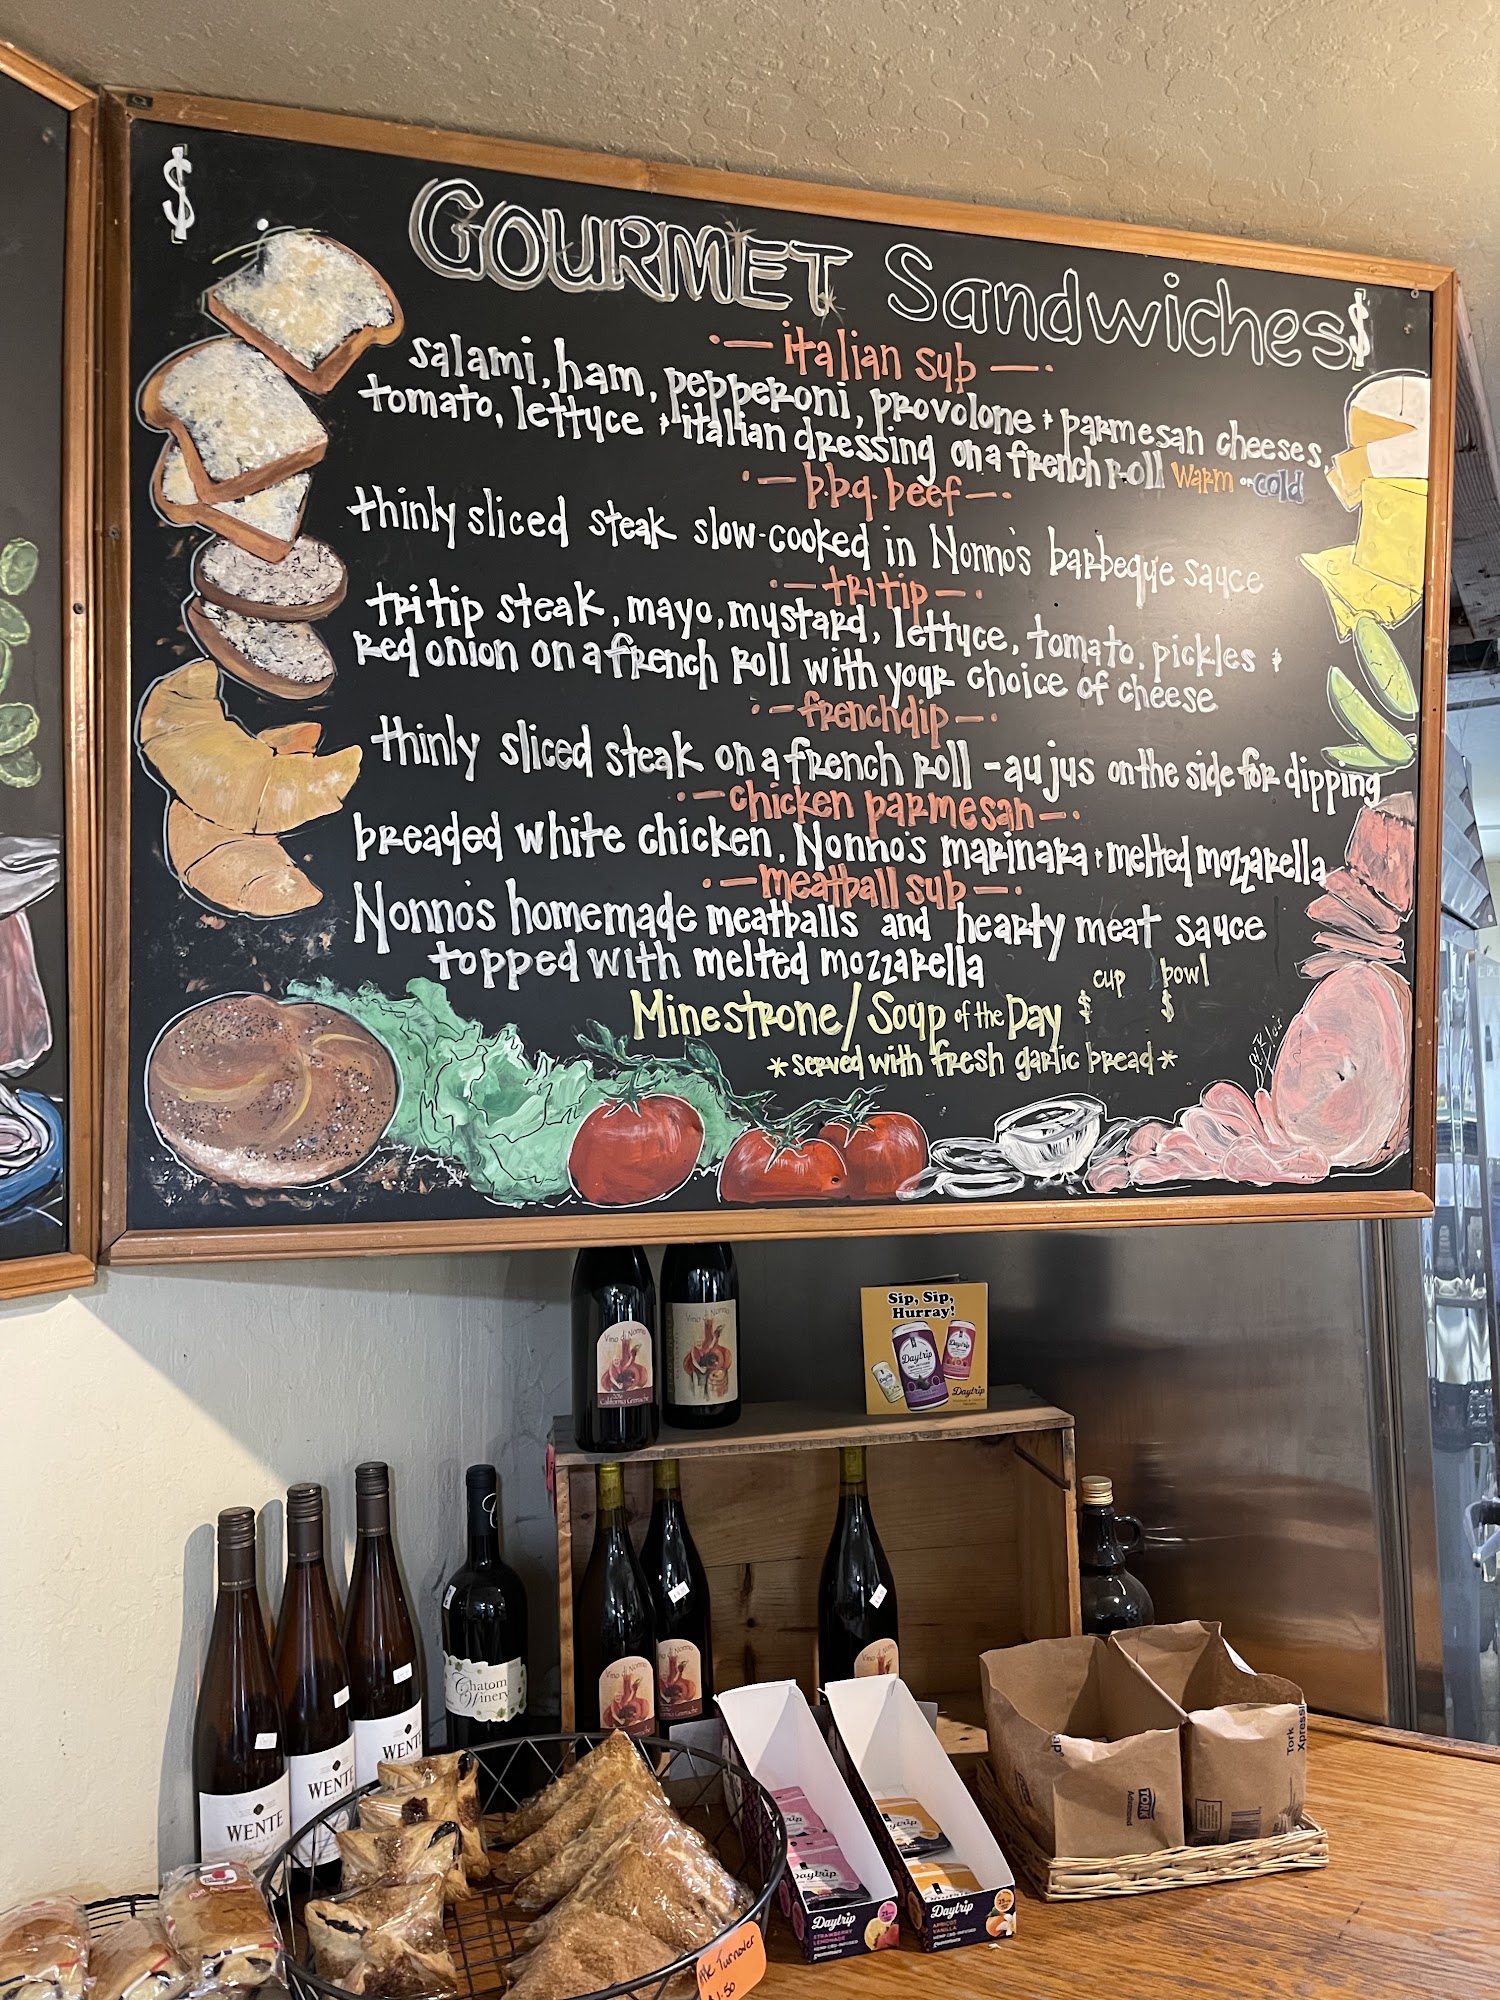 $
GOURMET Sandwiches
$
italian sub
salami, ham, pepperoni, provolone + parmesan cheeses,
tomato, lettuce + italian dressing on a french roll warm or cold
b.b.q. beef
thinly sliced steak slow-cooked in Nonno's barbeque sauce
tri tip
tri tip steak, mayo, mustard, lettuce, tomato, pickles +
red onion on a french roll with your choice of cheese
french dip
thinly sliced steak on a french roll - au jus on the side for dipping
chicken parmesan
breaded white chicken, Nonno's marinara + melted mozzarella
meatball sub
Nonno's homemade meatballs and hearty meat sauce
topped with melted mozzarella
cup bowl
Minestrone/Soup of the Day $ $
*served with fresh garlic bread*
Sip, Sip,
Hurray!
Daytrip
Daytrip
Vino di Nonno
California Grenache
Vino di Nonno
Vino di Nonno
Chatom
Winery
WENTE
WENTE
WENTE
Daytrip
STRAWBERRY
LEMONADE
HEMP CBD-INFUSED
GUMMIES
Daytrip
APRICOT
VANILLA
HEMP CBD-INFUSED
GUMMIES
TORK
Tork
Xpress
Turnover
1.50